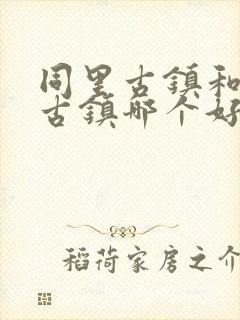 同里古鎮和
古鎮哪个好
稻荷家房之介